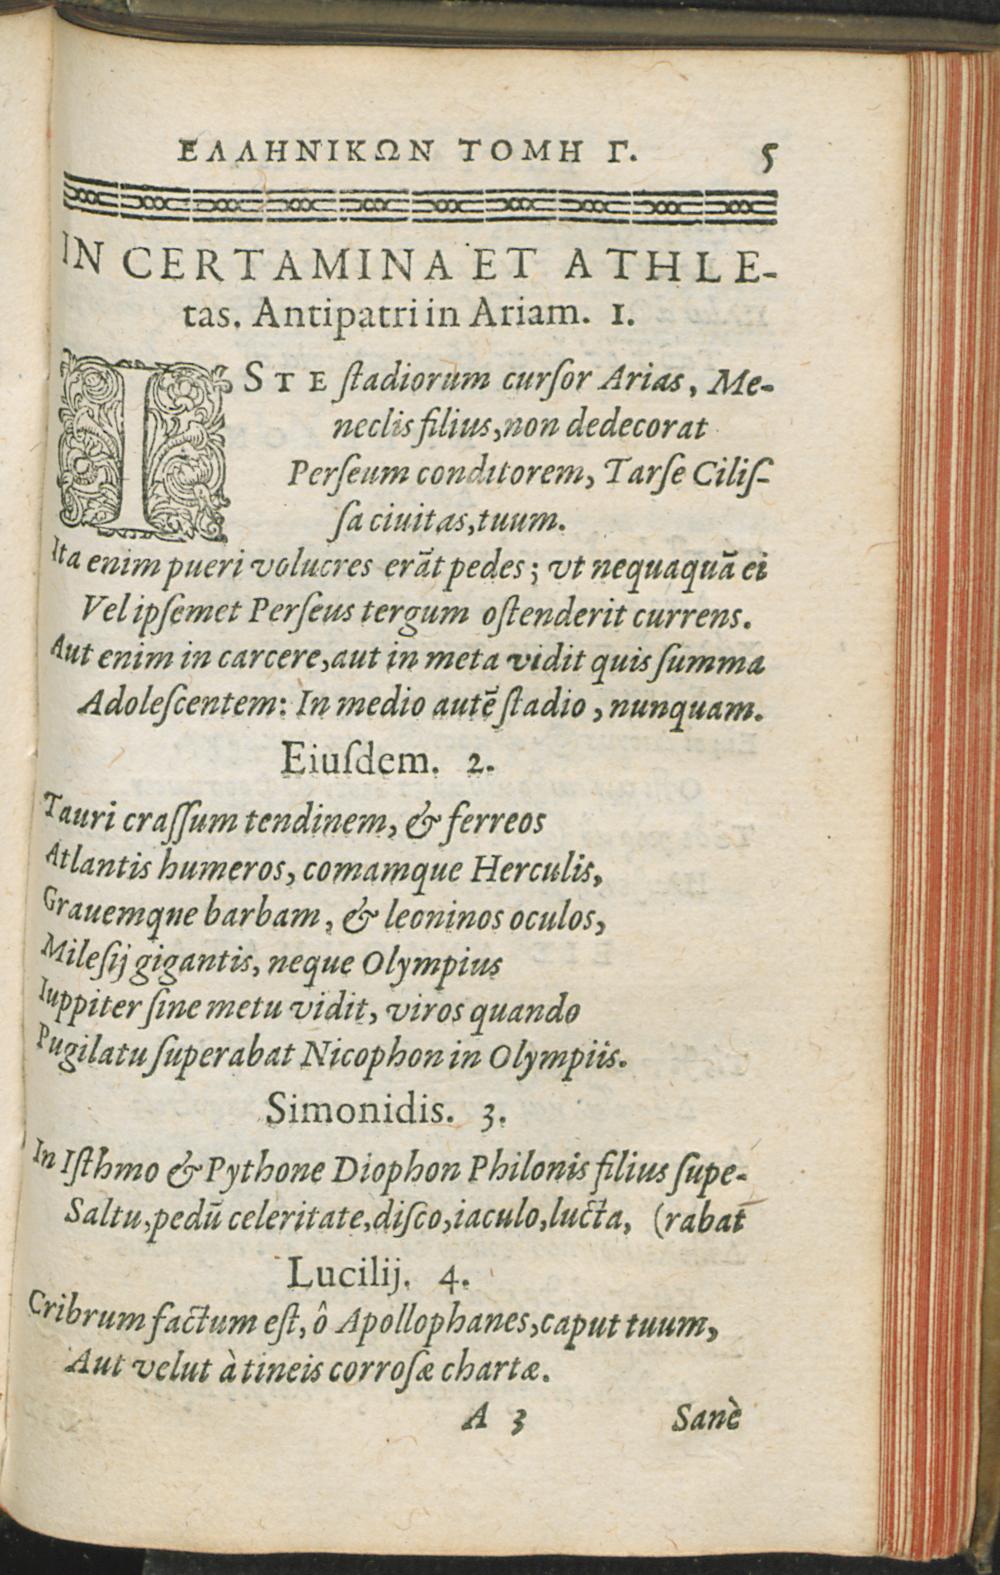 ΕΛΛΗΝΙΚΩΝ ΤΟΜΗ Γ. 5
IN CERTAMINA ET ATHLE-
tas. Antipatri in Ariam. 1.
ISTE ſtadiorum curſor Arias, Me-
neclis filius, non dedecorat
Perſeum conditorem, Tarſe Ciliſ-
ſa ciuitas, tuum.
Ita enim pueri volucres erāt pedes; vt nequaquā ei
Vel ipſemet Perſeus tergum oſtenderit currens.
Aut enim in carcere, aut in meta vidit quis ſumma
Adoleſcentem: In medio autē ſtadio, nunquam.
Eiuſdem. 2.
Tauri craſſum tendinem, & ferreos
Atlantis humeros, comamque Herculis,
Grauemque barbam, & leoninos oculos,
Mileſij gigantis, neque Olympius
Iuppiter ſine metu vidit, viros quando
Pugilatu ſuperabat Nicophon in Olympiis.
Simonidis. 3.
In Iſthmo & Pythone Diophon Philonis filius ſupe-
Saltu, pedū celeritate, diſco, iaculo, lucta, (rabat
Lucilij. 4.
Cribrum factum eſt, ô Apollophanes, caput tuum,
Aut velut à tineis corroſæ chartæ.
A 3 Sanè